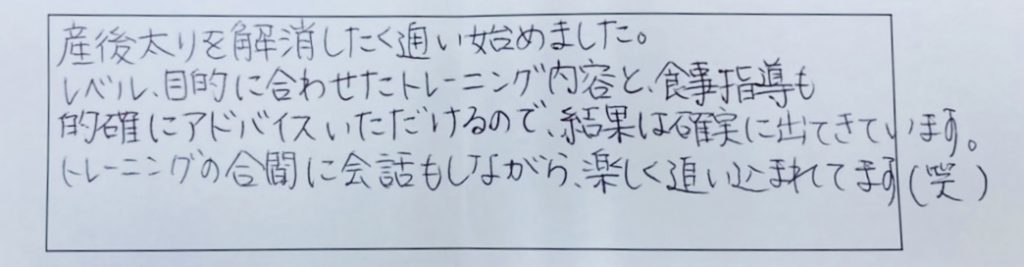 産後太りを解消したく通い始めました。
レベル、目的に合わせたトレーニング内容と、食事指導も
的確にアドバイスいただけるので、結果は確実に出てきています。
トレーニングの合間に会話もしながら、楽しく追い込まれてます(笑)